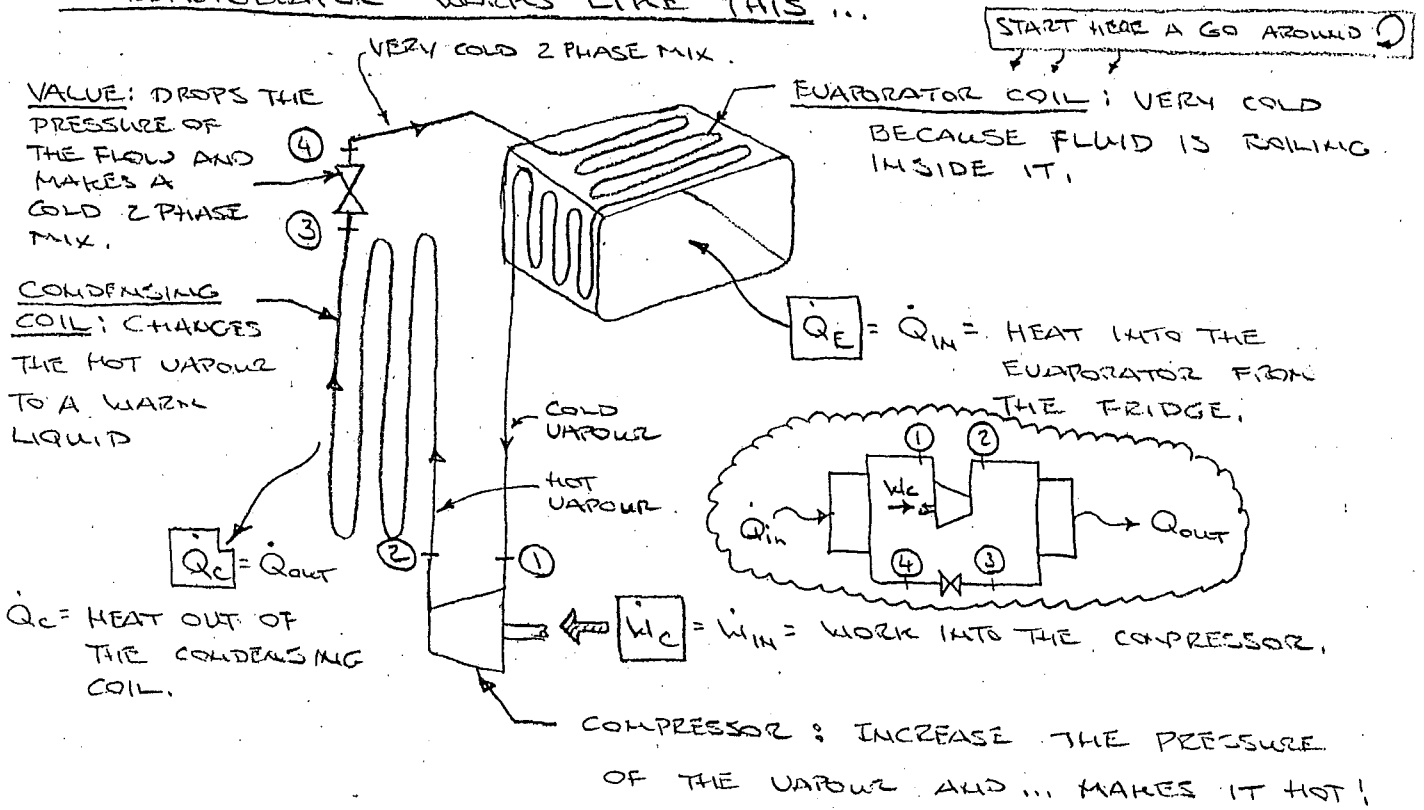 WORKS LIKE THIS ...
START HERE A GO AROUND
VERY COLD 2 PHASE MIX.
VALUE: DROPS THE
PRESSURE OF
THE FLOW AND
MAKES A
COLD 2 PHASE
MIX.
4
3
EVAPORATOR COIL: VERY COLD
BECAUSE FLUID IS BOILING
INSIDE IT.
CONDENSING
COIL: CHANGES
THE HOT VAPOUR
TO A WARM
LIQUID
Q̇E = Q̇IN = HEAT INTO THE
EVAPORATOR FROM
THE FRIDGE.
COLD
VAPOUR
HOT
VAPOUR
1 2
Ẇc
Q̇in
QOUT
4 3
2 1
Q̇C = Q̇OUT
Q̇c = HEAT OUT OF
THE CONDENSING
COIL.
ẆC = ẆIN = WORK INTO THE COMPRESSOR.
COMPRESSOR: INCREASE THE PRESSURE
OF THE VAPOUR AND ... MAKES IT HOT!